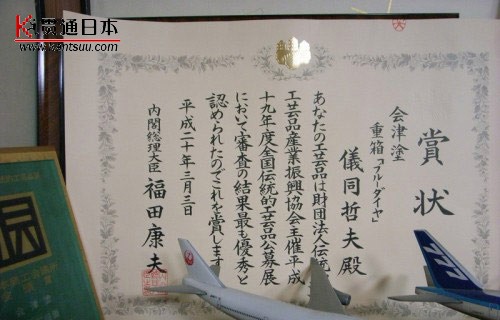 贯通日本
www.kantsuu.com
賞状
会津塗
重箱「ブルーダイヤ」
儀同哲夫殿
あなたの工芸品は財団法人伝統
工芸品産業振興協会主催平成
十九年度全国伝統的工芸品公募展
において審査の結果最も優秀と
認められたのでこれを賞します
平成二十年三月三日
内閣総理大臣 福田康夫